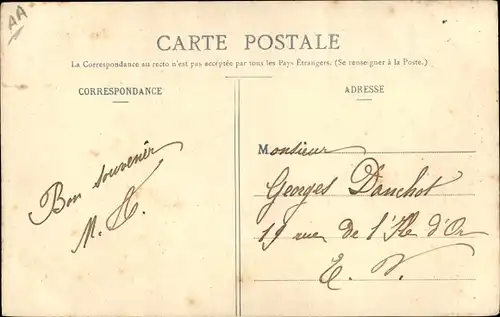 AA
CARTE POSTALE
La Correspondance au recto n'est pas acceptée par tous les Pays Étrangers. (Se renseigner à la Poste.)
CORRESPONDANCE
ADRESSE
Bon souvenir
M. H.
Monsieur
Georges Danchot
19 rue de l'Ile d'Or
E. V.